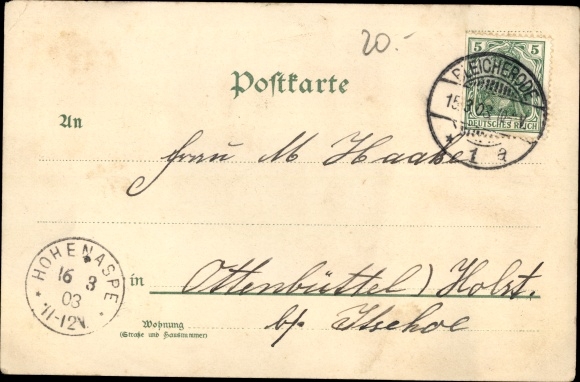 20.-
5 5
Postkarte
BLEICHERODE
15.3.03
DEUTSCHES REICH
* 1 a
An
Frau M Haake
HOHENASPE
16 3
03
*11-12V.*
in Ottenbüttel) Holst.
Wohnung
(Straße und Hausnummer)
b/ Itzehoe